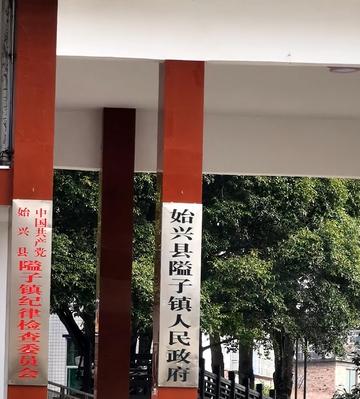 中国共产党
始兴县
隘子镇纪律检查委员会
始兴县隘子镇人民政府